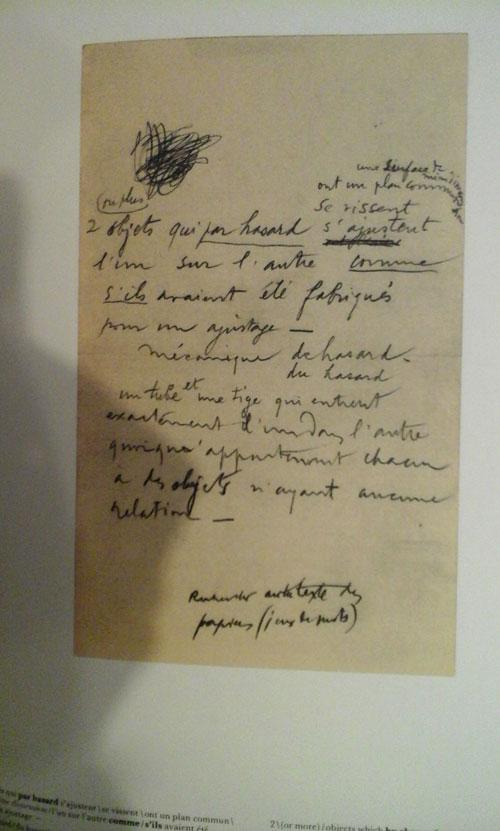 une surface
ont un plan commun
se vissent
(ou plus)
2 objets qui par hasard s'ajustent
l'un sur l'autre comme
s'ils avaient été fabriqués
pour un ajustage —
Mécanique de hasard -
du hasard
un tube et une tige qui entrent
exactement l'un dans l'autre
quoiqu'appartenant chacun
à des objets n'ayant aucune
relation —
papiers (jeux de mots)
qui par hasard s'ajustent \ se vissent \ ont un plan commun \
/ l'un sur l'autre comme / s'ils avaient été
ajustage —
2 \ (or more) / objects which